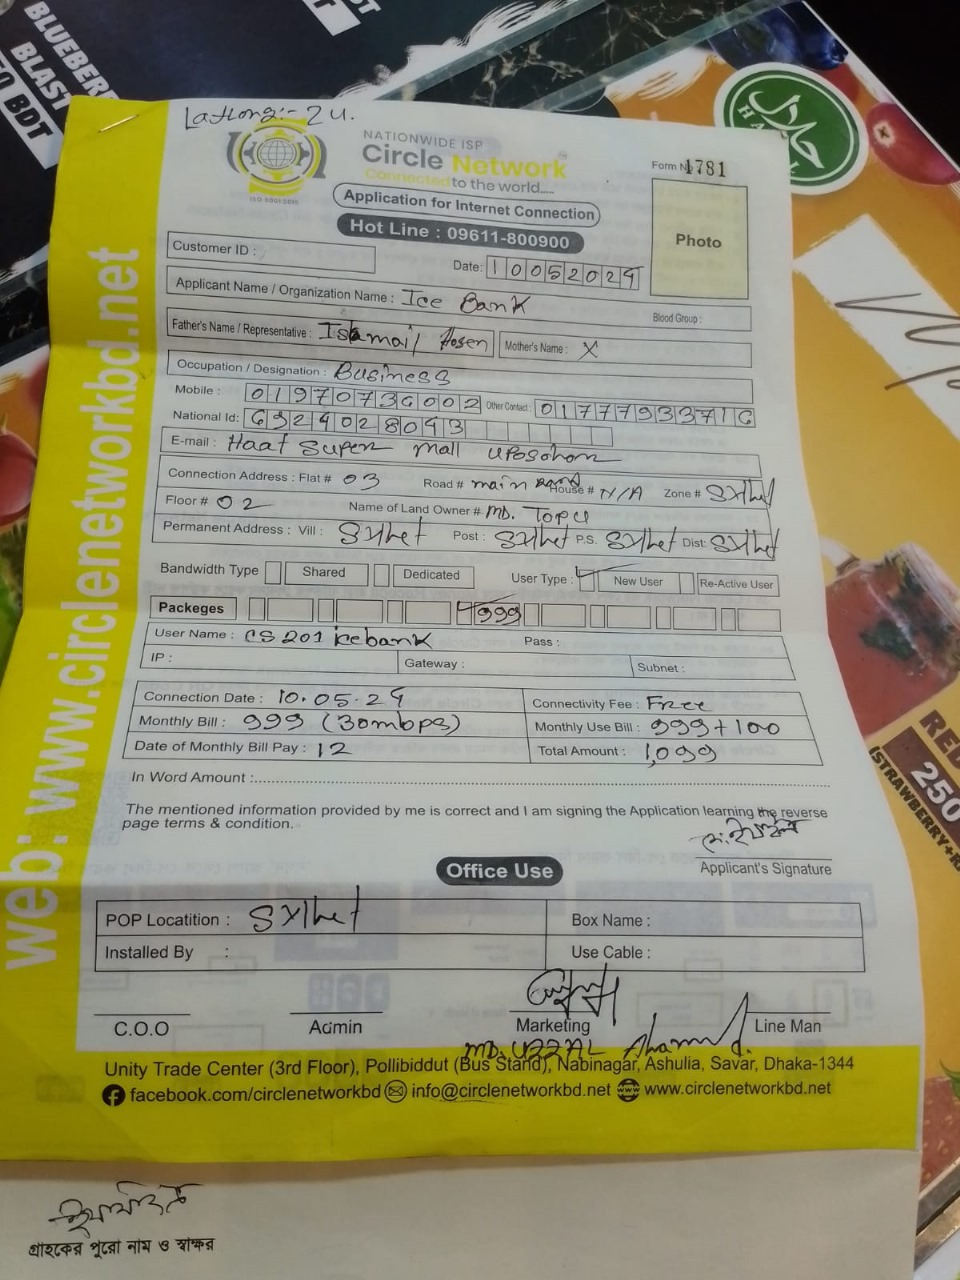 BLUEBERRY
BLAST
50 BDT
Lathong:- 2U.
NATIONWIDE ISP
Circle Network
Connected to the world.....
ISO 9001:2015
Form N 1781
Application for Internet Connection
Hot Line : 09611-800900
Photo
Customer ID :
Date: 10052024
Applicant Name / Organization Name : Ice Bank
Blood Group :
Father's Name / Representative : Ismail Hosen Mother's Name : X
Occupation / Designation : Business
Mobile : 01970736002 Other Contact : 01777933716
National Id: 6924028043
E-mail : Haat Super mall uposohon
Connection Address : Flat # 03 Road # main Road House # N/A Zone # Sylhet
Floor # 02 Name of Land Owner # MD. Topu
Permanent Address : Vill : Sylhet Post : Sylhet P.S. Sylhet Dist: Sylhet
Bandwidth Type Shared Dedicated User Type : New User Re-Active User
Packeges 999
User Name : CS201icebank Pass :
IP : Gateway : Subnet :
Connection Date : 10.05.24 Connectivity Fee : Free
Monthly Bill : 999 (30mbps) Monthly Use Bill : 999+100
Date of Monthly Bill Pay : 12 Total Amount : 1,099
In Word Amount :
The mentioned information provided by me is correct and I am signing the Application learning the reverse
page terms & condition.
Applicant's Signature
Office Use
POP Locatition : Sylhet Box Name :
Installed By : Use Cable :
C.O.O Admin Marketing Line Man
MD. UZZAL Ahamed.
Unity Trade Center (3rd Floor), Pollibiddut (Bus Stand), Nabinagar, Ashulia, Savar, Dhaka-1344
facebook.com/circlenetworkbd info@circlenetworkbd.net www.circlenetworkbd.net
web: www.circlenetworkbd.net
গ্রাহকের পুরো নাম ও স্বাক্ষর
RED
250
(STRAWBERRY+